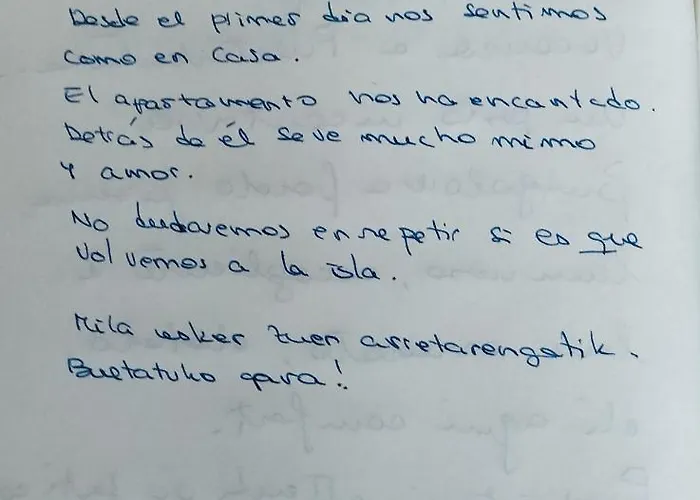 Desde el primer día nos sentimos
como en casa.
El apartamento nos ha encantado.
Detrás de él se ve mucho mimo
y amor.
No dudaremos en repetir si es que
volvemos a la isla.
Mila esker zuen arretarengatik.
Bueltatuko gara!